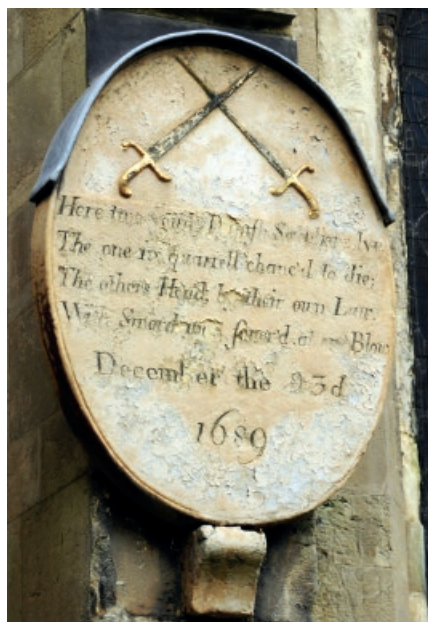 Here two young Danish Souldiers lye
The one in quarrell chanc'd to die;
The others Head, by their own Law,
With Sword was sever'd at one Blow
December the 23d
1689